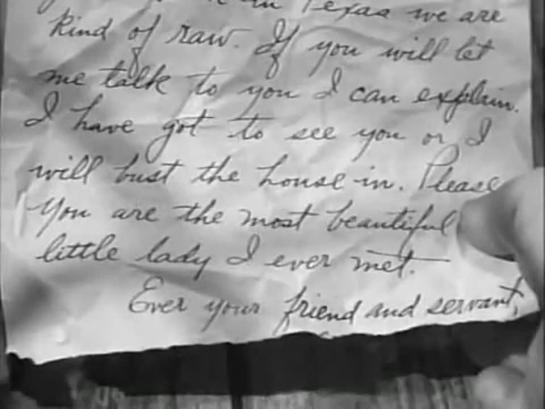 in Texas we are
kind of raw. If you will let
me talk to you I can explain.
I have got to see you or I
will bust the house in. Please
You are the most beautiful
little lady I ever met.
Ever your friend and servant,